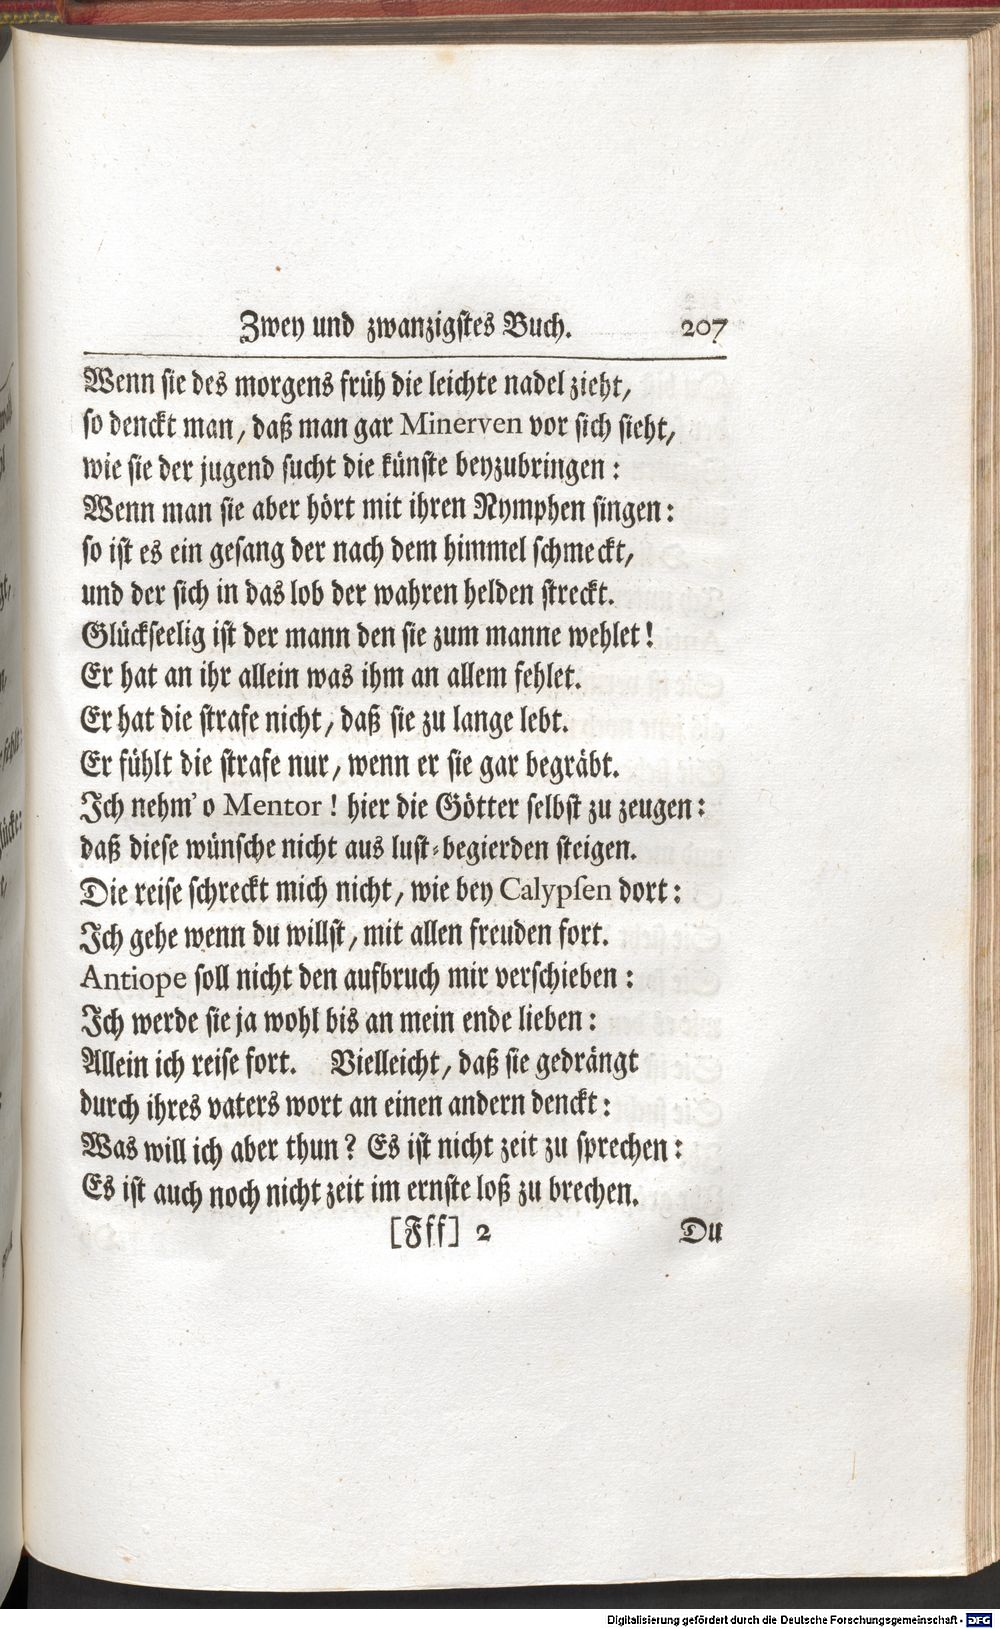 Zwey und zwanzigstes Buch. 207
Wenn sie des morgens früh die leichte nadel zieht,
so denckt man, daß man gar Minerven vor sich sieht,
wie sie der jugend sucht die künste beyzubringen:
Wenn man sie aber hört mit ihren Nymphen singen:
so ist es ein gesang der nach dem himmel schmeckt,
und der sich in das lob der wahren helden streckt.
Glückseelig ist der mann den sie zum manne wehlet!
Er hat an ihr allein was ihm an allem fehlet.
Er hat die strafe nicht, daß sie zu lange lebt.
Er fühlt die strafe nur, wenn er sie gar begräbt.
Ich nehm' o Mentor! hier die Götter selbst zu zeugen:
daß diese wünsche nicht aus lust-begierden steigen.
Die reise schreckt mich nicht, wie bey Calypsen dort:
Ich gehe wenn du willst, mit allen freuden fort.
Antiope soll nicht den aufbruch mir verschieben:
Ich werde sie ja wohl bis an mein ende lieben:
Allein ich reise fort. Vielleicht, daß sie gedrängt
durch ihres vaters wort an einen andern denckt:
Was will ich aber thun? Es ist nicht zeit zu sprechen:
Es ist auch noch nicht zeit im ernste loß zu brechen.
[Fff] 2 Du
Digitalisierung gefördert durch die Deutsche Forschungsgemeinschaft - DFG